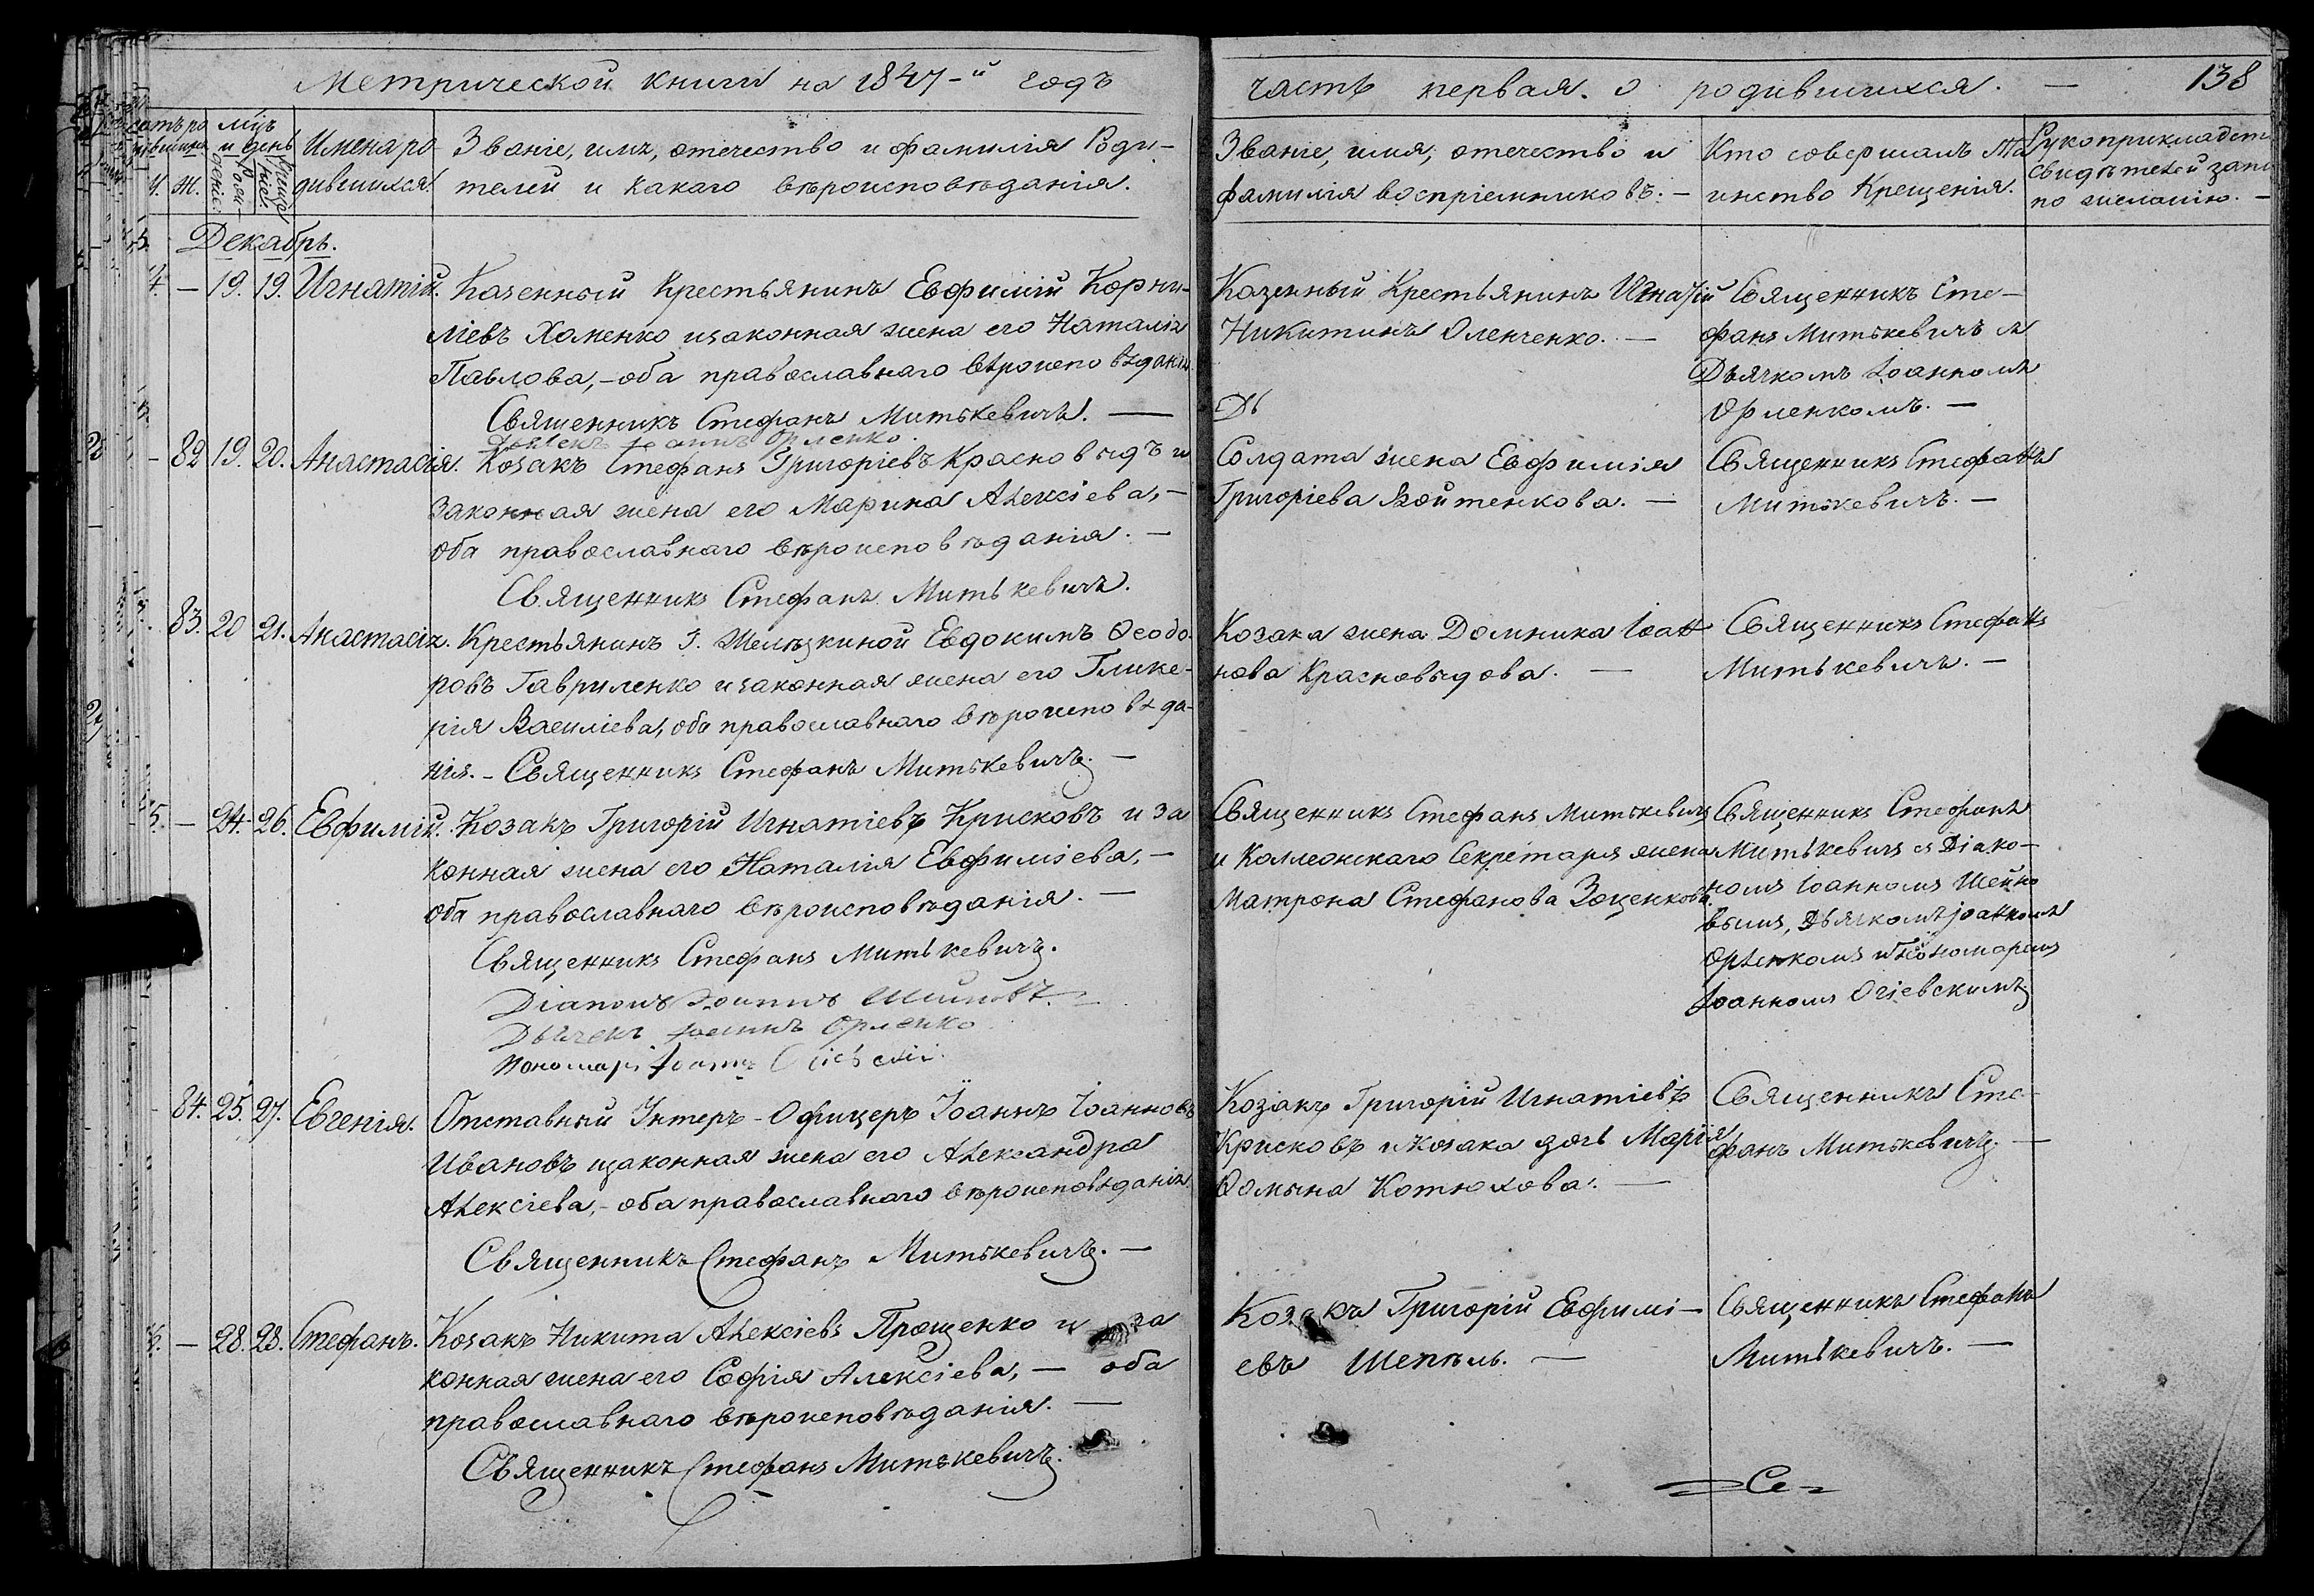 Метрической книги на 1847-й годъ
часть первая. о родившихся. — 138
мцъ
и день
Ч. Ж.
Имена ро
дившихся.
Званіе, имя, отечество и фамилія Роди-
телей и какаго вѣроисповѣданія.
Званіе, имя, отечество и
фамилія воспріемниковъ. —
Кто совершалъ Та
инство Крещенія.
Рукоприкладст
свидѣтелей запи
по желанію. —
Декабрь.
— 19. 19. Игнатій. Казенный Крестьянинъ Евфимій Корни-
ліевъ Хоменко и законная жена его Наталія
Павлова, - оба православнаго вѣроисповѣданія
Священникъ Стефанъ Митькевичъ. —
Дьячекъ Іоаннъ Орленко.
Казенный Крестьянинъ Игнатій
Никитинъ Оленченко. —
Дь
Священникъ Сте-
фанъ Митькевичъ съ
Дьячкомъ Іоанномъ
Орленкомъ. —
- 82 19. 20. Анастасія. Козакъ Стефанъ Григоріевъ Красновыдъ и
законная жена его Марина Алексіева, -
оба православнаго вѣроисповѣданія. —
Священникъ Стефанъ Митькевичъ.
Солдата жена Евфимія
Григоріева Войтенкова. —
Священникъ Стефанъ
Митькевичъ. —
83. 20 21. Анастасія. Крестьянинъ Г. Шелѣхиной Евдокимъ Ѳеодо-
ровъ Гавриленко и законная жена его Глике-
рія Василіева, оба православнаго вѣроисповѣда-
нія. - Священникъ Стефанъ Митькевичъ. —
Козака жена Домника Іоан
нова Красновыдова. —
Священникъ Стефанъ
Митькевичъ. —
— 24. 26. Евфимій. Козакъ Григорій Игнатіевъ Крисковъ и за
конная жена его Наталія Евфиміева, -
оба православнаго вѣроисповѣданія. —
Священникъ Стефанъ Митькевичъ.
Діаконъ Іоаннъ
Дьячекъ Іоаннъ Орленко
Пономарь Іоаннъ Огіевскій.
Священникъ Стефанъ Митькевичъ
и Коллежскаго Секретаря жена
Матрона Стефанова Зоценкова.
Священникъ Стефанъ
Митькевичъ съ Діако-
номъ Іоанномъ Шейно
вымъ, Дьячкомъ Іоанномъ
Орленкомъ и Пономаремъ
Іоанномъ Огіевскимъ
84. 25. 27. Евгенія. Отставный Унтеръ-Офицеръ Іоаннъ Іоанновъ
Ивановъ и законная жена его Александра
Алексіева, - оба православнаго вѣроисповѣданія.
Священникъ Стефанъ Митькевичъ. —
Козакъ Григорій Игнатіевъ
Крисковъ и козака дочь Марія
Ѳомина Котюхова. —
Священникъ Сте-
фанъ Митькевичъ. —
— 28. 28. Стефанъ. Козакъ Никита Алексіевъ Прощенко и за
конная жена его Софія Алексіева, — оба
православнаго вѣроисповѣданія. —
Священникъ Стефанъ Митькевичъ.
Козакъ Григорій Евфимі-
евъ Шепель. —
Священникъ Стефанъ
Митькевичъ. —